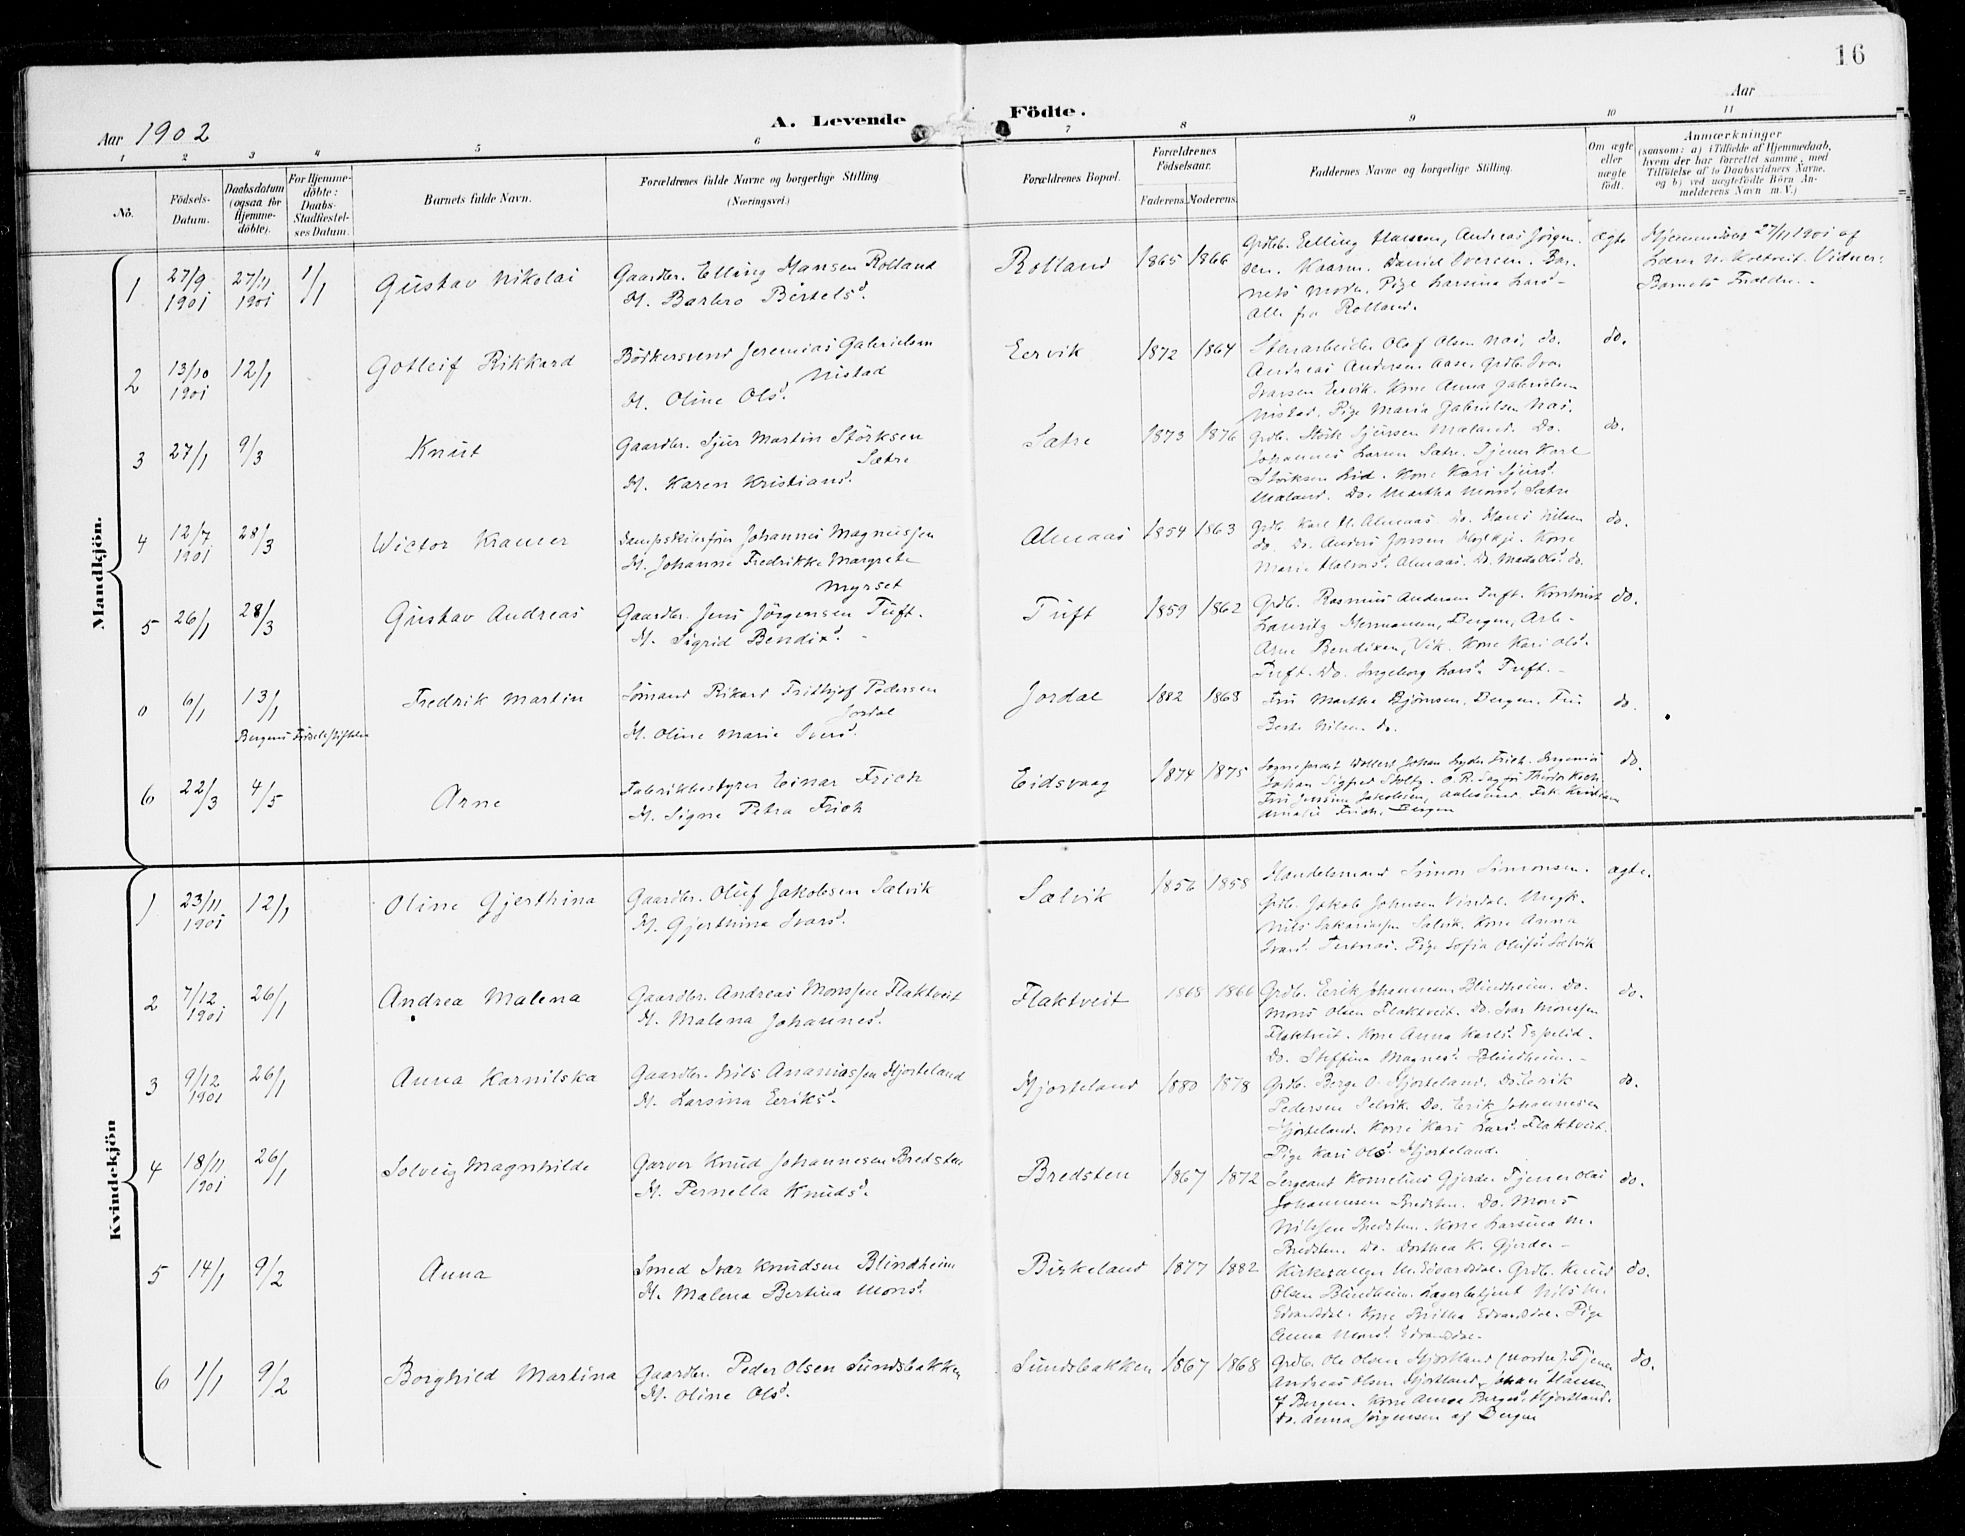 16
Aar 1902
A. Levende Födte.
Aar
1 2 3 4 5 6 7 8 9 10 11
No.
Födsels-Datum.
Daabsdatum (ogsaa for Hjemme-döbte).
For Hjemme-döbte: Daabs-Stadfæstel-ses Datum.
Barnets fulde Navn.
Forældrenes fulde Navne og borgerlige Stilling
(Næringsvei.)
Forældrenes Bopæl.
Forældrenes Födselsaar.
Faderens. Moderens.
Faddernes Navne og borgerlige Stilling.
Om ægte eller uægte födt.
Anmærkninger
(saasom: a) i Tilfælde af Hjemmedaab,
hvem der har forrettet samme, med
Tilföielse af to Daabsvidners Navne,
og b) ved uægtefödte Börn An-
melderens Navn m. V.)
Mandkjön.
1 27/9 1901 27/11 1901 1/1 Gustav Nikolai
Gaardbr. Elling Hansen Rolland
H. Barbro Bertelsd.
Rolland 1865 1866
Grdb. Elling Hansen, Andreas Jörgen-
sen, Kaaren, Daniel Iversen. Bar-
nets Moder, Pige Larsina Larsd
Alle fra Rolland.
ægte
Hjemmedöbt 27/11 1901 af
Lærer N. Koltveit. Vidner:
Barnets Forældre.
2 13/10 1901 12/1 Gotleif Rikkard
Bödkersvend Jeremias Gabrielsen
Nistad
H. Oline Olsd.
Eervik 1872 1864
Stenarbeider Olaf Olsen Nas, do.
Andreas Andersen Aase, Grdb. Ivar
Ivarsen Eervik. Kone Anna Gabrielsen
Nistad. Pige Maria Gabrielsen Nas.
do.
3 27/1 9/3 Knut
Gaardbr. Sjur Martin Störksen
Sætre
H. Karen Kristiansd.
Sætre 1873 1876
Grdb. Störk Sjursen Mæland. Do.
Johannes Larsen Sætre. Tjener Karl
Störksen Lid. Kone Kari Sjursd.
Mæland. Do. Martha Monsd. Sætre
do.
4 12/7 1901 28/3 Wictor Kramer
Dampskibsförer Johannes Magnussen
H. Johanne Fredrikke Margrete
Myrset
Almaas 1854 1863
Grdb. Karl H. Almaas. do. Hans Nilsen
do. Do. Anders Jonsen. Kone
Marie Halvorsd. Almaas. Do. Olsd. do.
do.
5 26/1 28/3 Gustav Andreas
Gaardbr. Jens Jörgensen Tuft.
H. Sigrid Bendixd.
Tuft 1859 1862
Grdb. Rasmus Andersen Tuft. Kontorist
Lauritz Hermansen, Bergen, Arb.
Arne Bendixen, Vik. Kone Kari Olsd.
Tuft. Do. Ingeborg Larsd. Tuft.
do.
0 6/1 13/1 Fredrik Martin
Bergens Födselsstiftelse
Sömand Rikard Fridthjof Pedersen
Jordal
H. Oline Marie Iversd.
Jordal 1882 1868
Fru Martha Björnsen, Bergen, Fru
Berte Nilsen do.
do.
6 22/3 4/5 Arne
Fabrikbestyrer Einar Frich
H. Signe Petra Frich
Eidsvaag 1874 1875
Sogneprest Wollert Johan Frich. Ingeniör
Johan Sigfred Stoltz. O.R. Sagf. Theodor Koch
Fru Jakobsen, Aalesund. Frk. Kristiane
Amalie Frich, Bergen
do.
Kvindekjön
1 23/11 1901 12/1 Oline Gjerthina
Gaardbr. Oluf Jakobsen Sælvik
H. Gjerthina Ivarsd.
Sælvik 1856 1858
Handelsmand Simon Simonsen.
Grdb. Jakob Johnsen Vindal. Ungk.
Nils Sakariassen Sælvik. Kone Anna
Ivarsd. Tertnæs. Pige Sofia Olufsd. Sælvik
ægte.
2 7/12 1901 26/1 Andrea Malena
Gaardbr. Andreas Monssen Flaktveit
H. Malena Johannesd.
Flaktveit 1868 1866
Grdb. Erik Johannesen Blindheim. Do.
Mons Olsen Flaktveit. Do. Ivar Monssen
Flaktveit. Kone Anna Karlsd. Espelid.
Do. Steffina Magnesd. Blindheim.
do.
3 9/12 1901 26/1 Anna Karnilska
Gaardbr. Nils Ananiassen Hjorteland
H. Larsina Eeriksd.
Hjorteland 1880 1878
Grdb. Berge O. Hjorteland. Do. Eerik
Pedersen Selvik. Do. Erik Johannesen
Hjorteland. Kone Kari Larsd. Flaktveit.
Pige Kari Olsd. Hjorteland.
do.
4 18/11 1901 26/1 Solveig Magnhilde
Garver Knud Johannesen Bredsten
H. Pernella Knudsd.
Bredsten 1867 1872
Sergeant Kornelius Gjerde. Tjener Olai
Johannesen Bredsten. Do. Mons
Nilssen Bredsten. Kone Larsina M.
Bredsten. Do. Dorthea K. Gjerde
do.
5 14/1 9/2 Anna
Smed Ivar Knudsen Blindheim
H. Malena Bertina Monsd.
Birkeland 1877 1882
Kirkesanger M. Edvardsdal. Grdb. Knud
Olsen Blindheim. Lagerbetjent Nils M.
Edvardsdal. Kone Britha Edvardsdal. Pige
Anna Monsd. Edvardsdal.
do.
6 1/1 9/2 Borghild Martina
Gaardbr. Peder Olsen Sundsbakken
H. Oline Olsd.
Sundsbakken 1867 1868
Grdb. Ole Olsen Hjortland (Nordre). Tjener
Andreas Olsen Hjortland, Johan Hansen
af Bergen. Kone Anna Bergesd. Hjortland.
Do. Anna Jörgensen af Bergen
do.